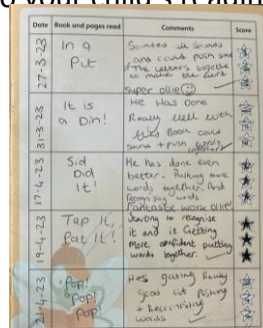 your child's
Date Book and pages read Comments Score
27-3-23
In a
Pit
Sounded the Sounds
and could push some
of the letters together
to make the
super ollie
31-3-23
It is
a Din!
He Has Done
Really well with
this Book could
Sound + push words
17-4-23
Sid
Did
It!
He has done even
better. Pushing more
words together. And
Recognising words
Fantastic work ollie!
19-4-23
Tap it,
Pat it!
Starting to recognise
it and is Getting
More confident putting
words together.
21-4-23
Pop!
Pop!
Pop!
Hes getting Really
good at Pushing
+ Recognising
words